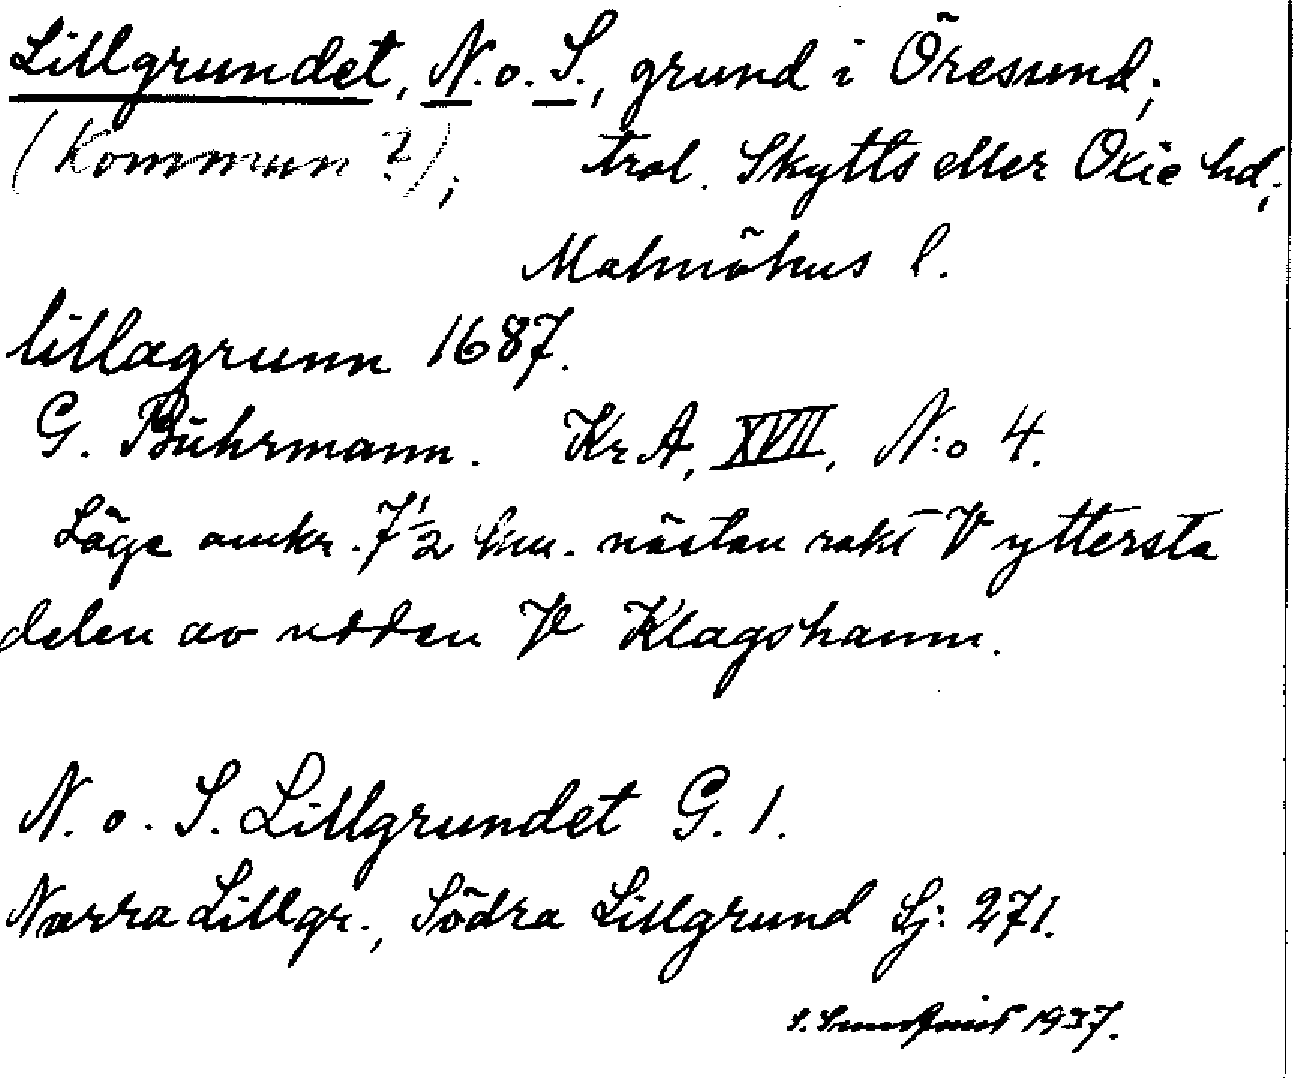 Lillgrundet, N. o. S., grund i Öresund;
(Kommun?); trol. Skytts eller Oxie hd;
Malmöhus l.
lillagrunn 1687.
G. Bührmann. Kr. A, XVII, N:o 4.
Läge omkr. 7½ km. nästan rakt V yttersta
delen av udden V Klagshamn.
N. o. S. Lillgrundet G. 1.
Norra Lillgr., Södra Lillgrund Sj: 271.
S. 1937.